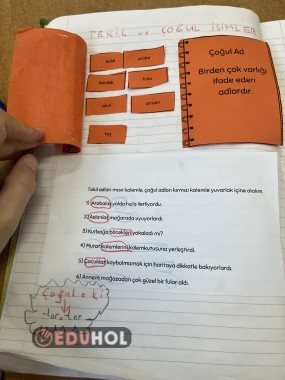 TEKİL ve ÇOĞUL İSİMLER
Çoğul Ad
Birden çok varlığı
ifade eden
adlardır.
orman
Tekil adları mavi kalemle, çoğul adları kırmızı kalemle yuvarlak içine alalım.
1) Arabalar yolda hızla ilerliyordu.
2) Aslanlar mağarada uyuyorlardı.
3) Kurbağa böcekleri yakaladı mı?
4) Murat kalemlerini kalem kutusuna yerleştirdi.
5) Çocuklar kaybolmamak için haritaya dikkatle bakıyorlardı.
6) Annem mağazadan çok güzel bir fular aldı.
Çoğul eki
lar ler
EDÜHOL